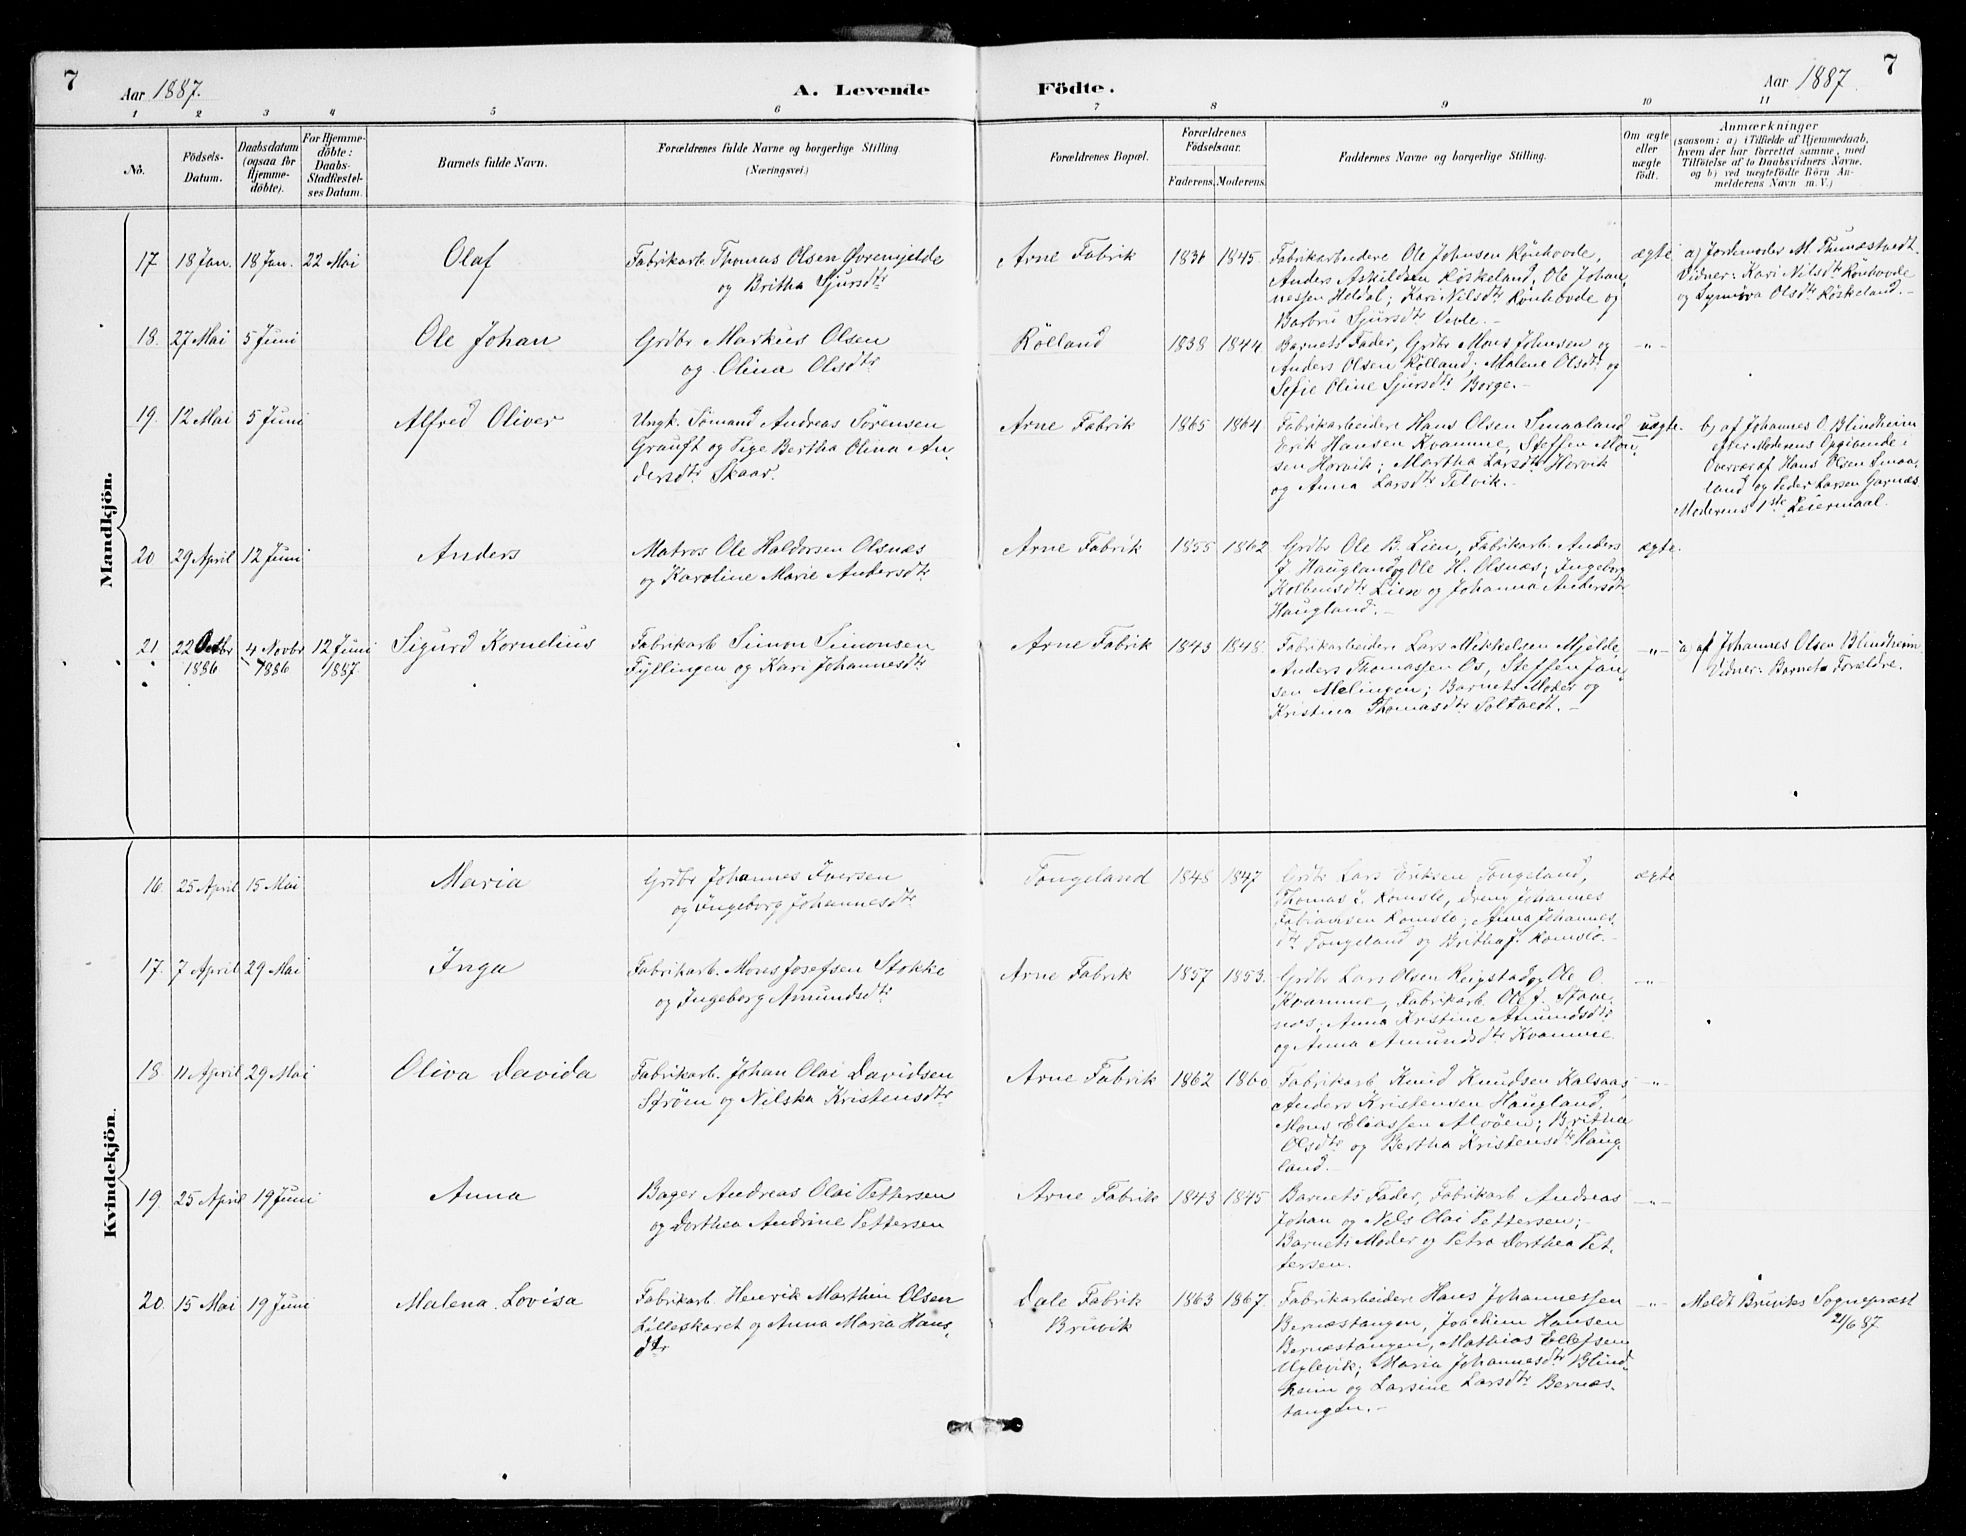 7
Aar 1887.
A. Levende Födte.
Aar 1887.
7
1 2 3 4 5 6 7 8 9 10 11
No.
Födsels-
Datum.
Daabsdatum
(ogsaa för
Hjemme-
döbte).
For Hjemme-
döbte:
Daabs-
Stadfæstel-
ses Datum.
Barnets fulde Navn.
Forældrenes fulde Navne og borgerlige Stilling
(Næringsvei.)
Forældrenes Bopæl.
Forældrenes
Födselsaar.
Faderens. Moderens.
Faddernes Navne og borgerlige Stilling.
Om ægte
eller
uægte
födt.
Anmærkninger
(saasom: a) i Tilfælde af Hjemmedaab,
hvem der har forrettet samme, med
Tilföielse af to Daabsvidners Navne.
og b) ved uægtefödte Börn An-
melderens Navn m. V.)
Mandkjön.
17. 18 Jan. 18 Jan. 22 Mai
Olaf
Fabrikarb. Thomas Olsen Øvremjelde
og Britha Sjursdtr
Arne Fabrik
1836 1845
Fabrikarbeidere Ole Johnsen Rønhovde,
Anders Askildsen Røskeland, Ole Johan-
nessen Heldal; Kari Nilsdtr Rønhovde og
Barbru Sjursdtr Vevle. -
ægte
a) Jordemoder M. Thunestvedt.
Vidner: Kari Nilsdtr Rønhovde
og Synneva Olsdtr Røskeland. -
18. 27 Mai 5 Juni
Ole Johan
Grdbr Markus Olsen
og Olina Olsdtr
Rølland
1838 1844
Barnets Fader, Grdbr Mons Johnsen og
Anders Olsen Rølland; Malene Olsdtr og
Sofie Oline Sjursdtr Borge. -
-"-
19. 12 Mai 5 Juni
Alfred Oliver
Ungk. Sømand Andreas Sørensen
Grauft og Pige Bertha Olina An-
dersdtr Skaar.
Arne Fabrik
1865 1864
Fabrikarbeidere Hans Olsen Smaaland
Erik Hansen Kvamme, Steffen Mon-
sen Horvik; Martha Larsdtr Horvik
og Anna Larsdtr Telvik. -
uægte.
b) af Johannes O. Blindheim
efter Moderens Opgivende i
Overvær af Hans Olsen Smaa-
land og Peder Larsen Garnæs
Moderens 1ste Leiermaal.
20 29 April 12 Juni
Anders
Matros Ole Haldorsen Olsnæs
og Karoline Marie Andersdtr
Arne Fabrik
1855 1862
Grdbr Ole B. Lien, Fabrikarb. Anders
J. Haugland og Ole H. Olsnæs; Ingeborg
Kolbensdtr Lien og Johanna Andersdtr
Haugland. -
ægte.
21 22 Octbr
1886
4 Novbr
1886
12 Juni
1887
Sigurd Kornelius
Fabrikarb Simon Simonsen
Fyllingen og Kari Johannesdtr
Arne Fabrik
1843 1848.
Fabrikarbeidere Lars Mikkelsen Mjelde,
Anders Thomassen Os, Steffen Jan-
sen Melingen; Barnets Moder og
Kristina Thomasdtr Soltvedt. -
-"-
a) af Johannes Olsen Blindheim
Vidner: Barnets Forældre.
Kvindekjön.
16. 25 April 15 Mai
Maria
Grdbr Johannes Iversen
og Ingeborg Johannesdtr
Tongeland
1848 1847
Grdbr Lars Eriksen Tongeland,
Thomas I. Romslo, dreng Johannes
Fabiansen Romslo; Anna Johannes-
dtr Tongeland og Britha J. Romslo. -
ægte
17. 7 April 29 Mai
Inga
Fabrikarb. Mons Josefsen Stokke
og Ingeborg Amundsdtr
Arne Fabrik
1857 1853.
Grdbr Lars Olsen Reigstad og Ole O.
Kvamme, Fabrikarb. Ole J. Stave-
næs; Anna Kristine Amundsdtr
og Anna Amundsdtr Kvamme.
-"-
18. 11 April 29 Mai
Oliva Davida
Fabrikarb. Johan Olai Davidsen
Strøm og Nilska Kristensdtr
Arne Fabrik
1862 1860
Fabrikarb. Knud Knudsen Kalsaas,
Anders Kristensen Haugland,
Mons Eliassen Alvøen; Britha
Olsdtr og Bertha Kristensdtr Haug-
land. -
-"-
19. 25 April 19 Juni
Anna
Bager Andreas Olai Pettersen
og Dorthea Andrine Pettersen
Arne Fabrik
1843 1845
Barnets Fader, Fabrikarb. Andreas
Johan og Nels Olai Pettersen;
Barnets Moder og Petra Dorthea Pet-
tersen.
-"-
20. 15 Mai 19 Juni
Malena Lovisa
Fabrikarb. Henrik Marthin Olsen
Lilleskaret og Anna Maria Hans-
dtr
Dale Fabrik
Bruvik
1863 1867
Fabrikarbeidere Hans Johannessen
Bernæstangen, Joachim Hansen
Bernæstangen, Mathias Ellefsen
Uglevik; Maria Johannesdtr Blind-
heim og Larsine Larsdtr Bernæs-
tangen. -
-"-
Meldt Bruviks Sognepræst
21/6 87